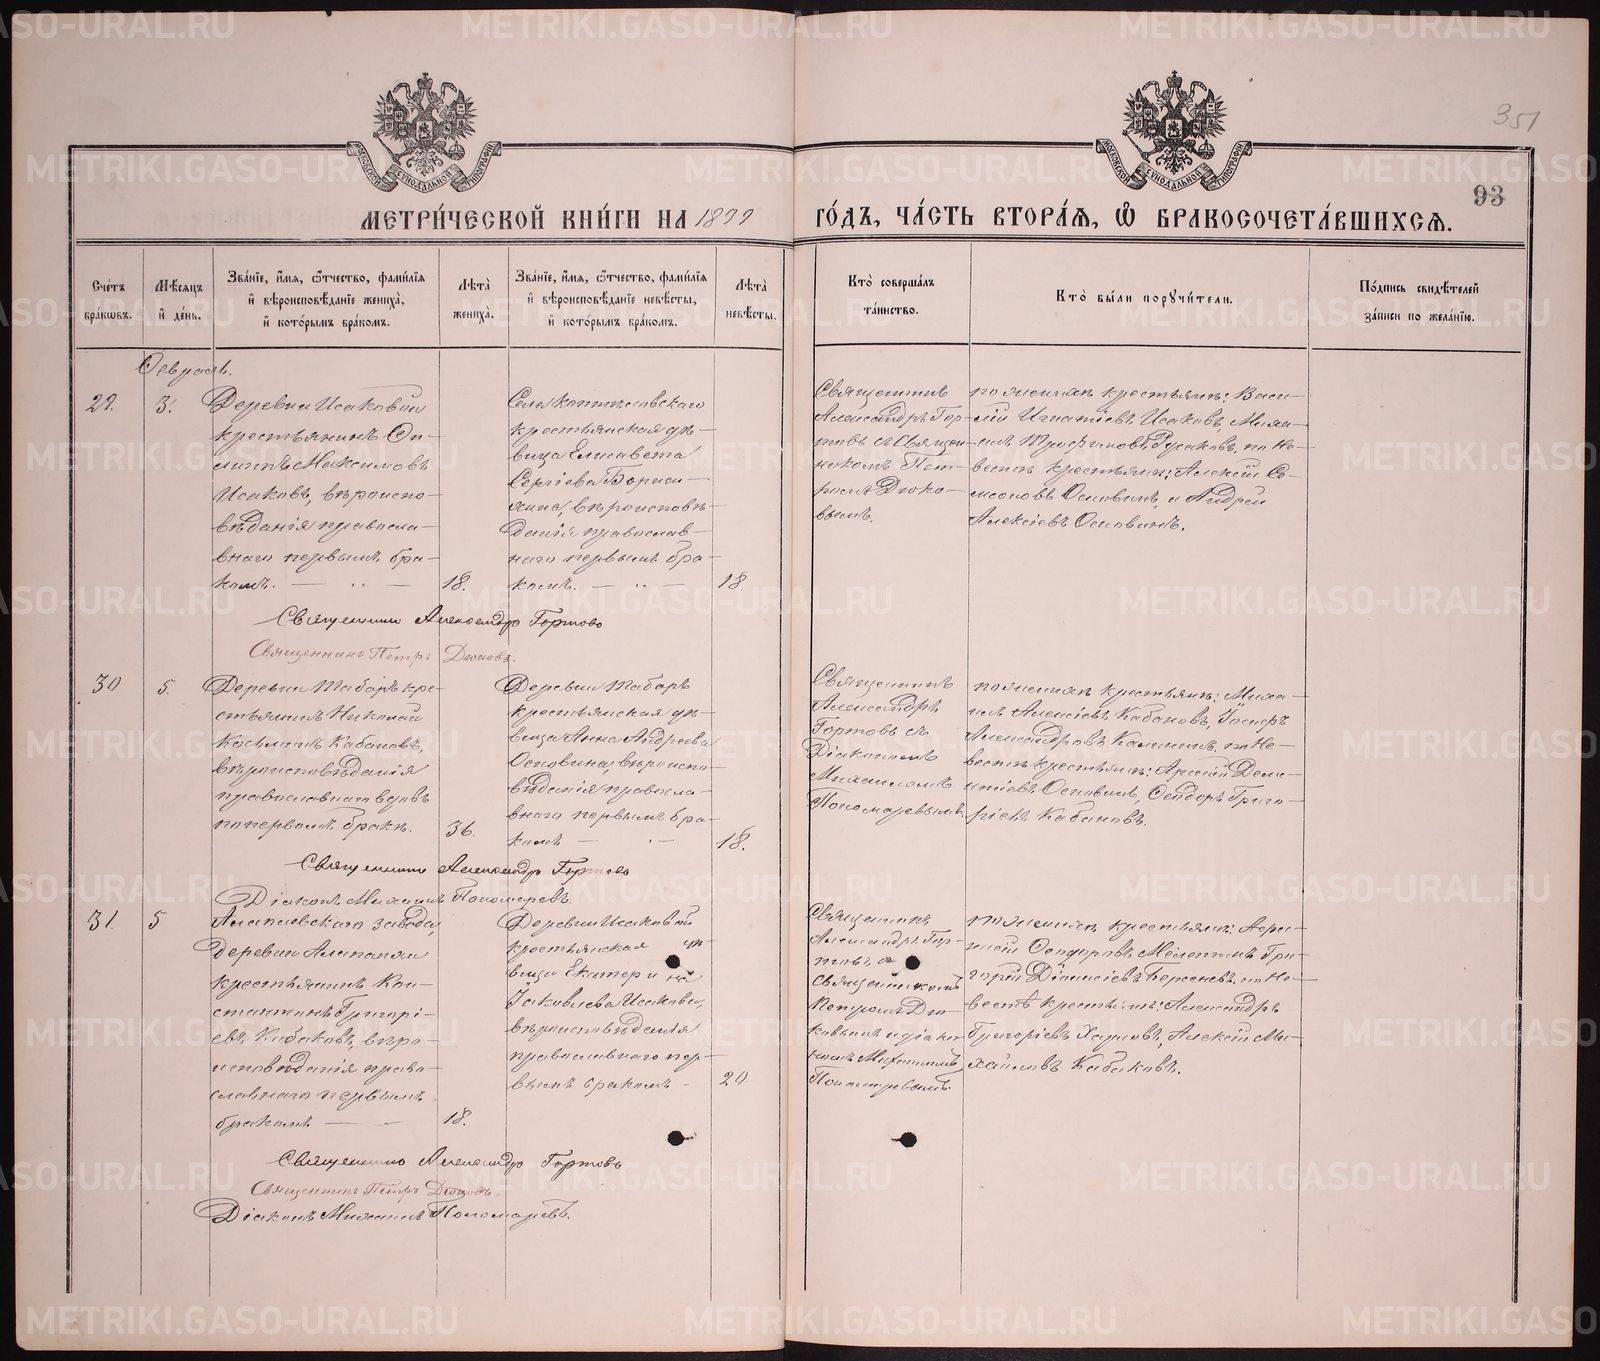 351
93
МЕТРИ́ЧЕСКОЙ КНИ́ГИ НА 1899 ГО́ДЪ, ЧА́СТЬ ВТОРА́Я, Ѡ БРАКОСОЧЕТА́ВШИХСЯ.
Сче́тъ бра́кѡвъ.
Мѣ́сяцъ и де́нь.
Зва́нїе, и́мя, ѻ́тчество, фами́лїя и вѣроисповѣ́данїе жениха̀, и кото́рымъ бра́комъ.
Лѣ́та жениха̀.
Зва́нїе, и́мя, ѻ́тчество, фами́лїя и вѣроисповѣ́данїе невѣ́сты, и кото́рымъ бра́комъ.
Лѣ́та невѣ́сты.
Кто̀ соверша́лъ та́инство.
Кто̀ бы́ли порꙋчи́тели.
По́дпись свидѣ́телей за́писи по жела́нїю.
Февраль.
29.
3.
Деревни Исаковой
крестьянинъ Фи-
липпъ Максимовъ
Исаковъ, вѣроиспо-
вѣданія правосла-
внаго первымъ бра-
комъ.
18.
Села Коптѣловскаго
крестьянская дѣ-
вица Елисавета
Сергіева
вѣроисповѣ-
данія православ-
наго первымъ бра-
комъ.
18
Священникъ
Александръ Гор-
товъ съ Священ-
никомъ Пет-
ромъ Дюко-
вымъ.
по женихѣ крестьяне: Васи-
лій Игнатіевъ Исаковъ, Миха-
илъ Трофимовъ Русаковъ, по не-
вѣстѣ крестьяне: Алексій Си-
меоновъ Осповинъ, и Андрей
Алексіевъ Осповинъ.
Священникъ Александръ Гортовъ
Священникъ Петръ Дюковъ.
30
5.
Деревни Таборъ кре-
стьянинъ Николай
Косминъ Кабановъ,
вѣроисповѣданія
православнаго вдовъ
по первомъ бракѣ.
36.
Деревни Таборъ
крестьянская дѣ-
вица Анна Андреева
Осповина, вѣроиспо-
вѣданія правосла-
внаго первымъ бра-
комъ
18.
Священникъ
Александръ
Гортовъ съ
Діакономъ
Михаиломъ
Пономаревымъ.
по женихѣ крестьяне: Миха-
илъ Алексіевъ Кабановъ,
Александровъ Калининъ, по не-
вѣстѣ крестьяне: Арсеній Деме-
нтіевъ Осповинъ, Ѳеодоръ Григо-
ріевъ Кабановъ.
Священникъ Александръ Гортовъ
Діаконъ Михаилъ Пономаревъ.
31.
5
Алапаевскаго завода,
деревни Алапаихи
крестьянинъ Кон-
стантинъ Григорі-
евъ Кабаковъ, вѣро-
исповѣданія право-
славнаго первымъ
бракомъ
18.
Деревни Исаковой
крестьянская дѣ-
вица Екатерина
Іаковлева Исакова,
вѣроисповѣданія
православнаго пер-
вымъ бракомъ
20
Священникъ
Александръ Гор-
товъ съ
Священникомъ
Петромъ Дю-
ковымъ и діако-
номъ Михаиломъ
Пономаревымъ.
по женихѣ крестьяне:
Ѳеодоровъ Мелентинъ, Гри-
горій Діонисіевъ Берсеневъ, по не-
вѣстѣ крестьяне: Александръ
Григоріевъ Алексій Ми-
хайловъ Кабаковъ.
Священникъ Александръ Гортовъ
Священникъ Петръ Дюковъ.
Діаконъ Михаилъ Пономаревъ.
METRIKI.GASO-URAL.RU